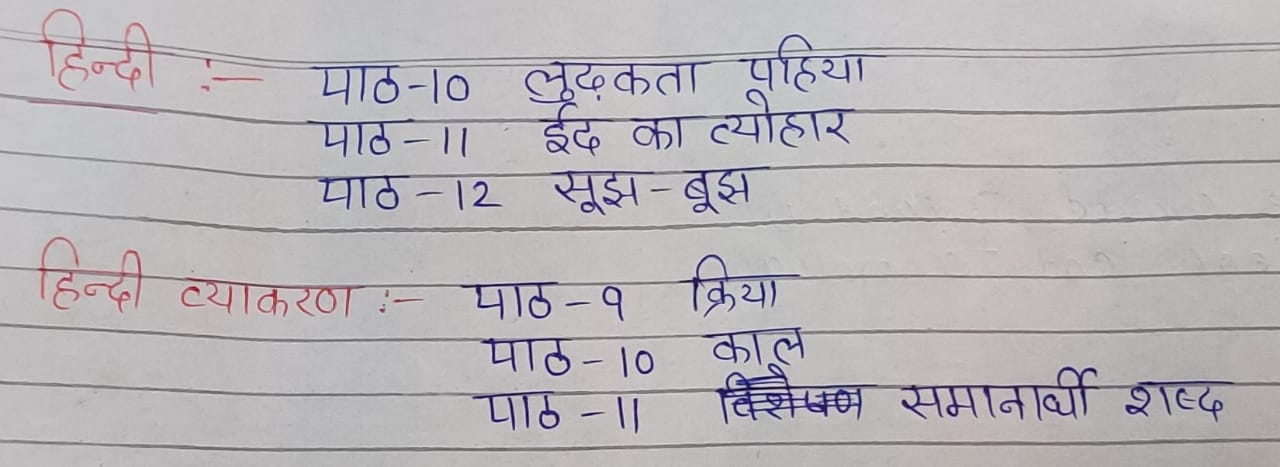 हिन्दी :- पाठ-10 लुढ़कता पहिया
पाठ-11 ईद का त्योहार
पाठ-12 सूझ-बूझ
हिन्दी व्याकरण :- पाठ-9 क्रिया
पाठ-10 काल
पाठ-11 समानार्थी शब्द